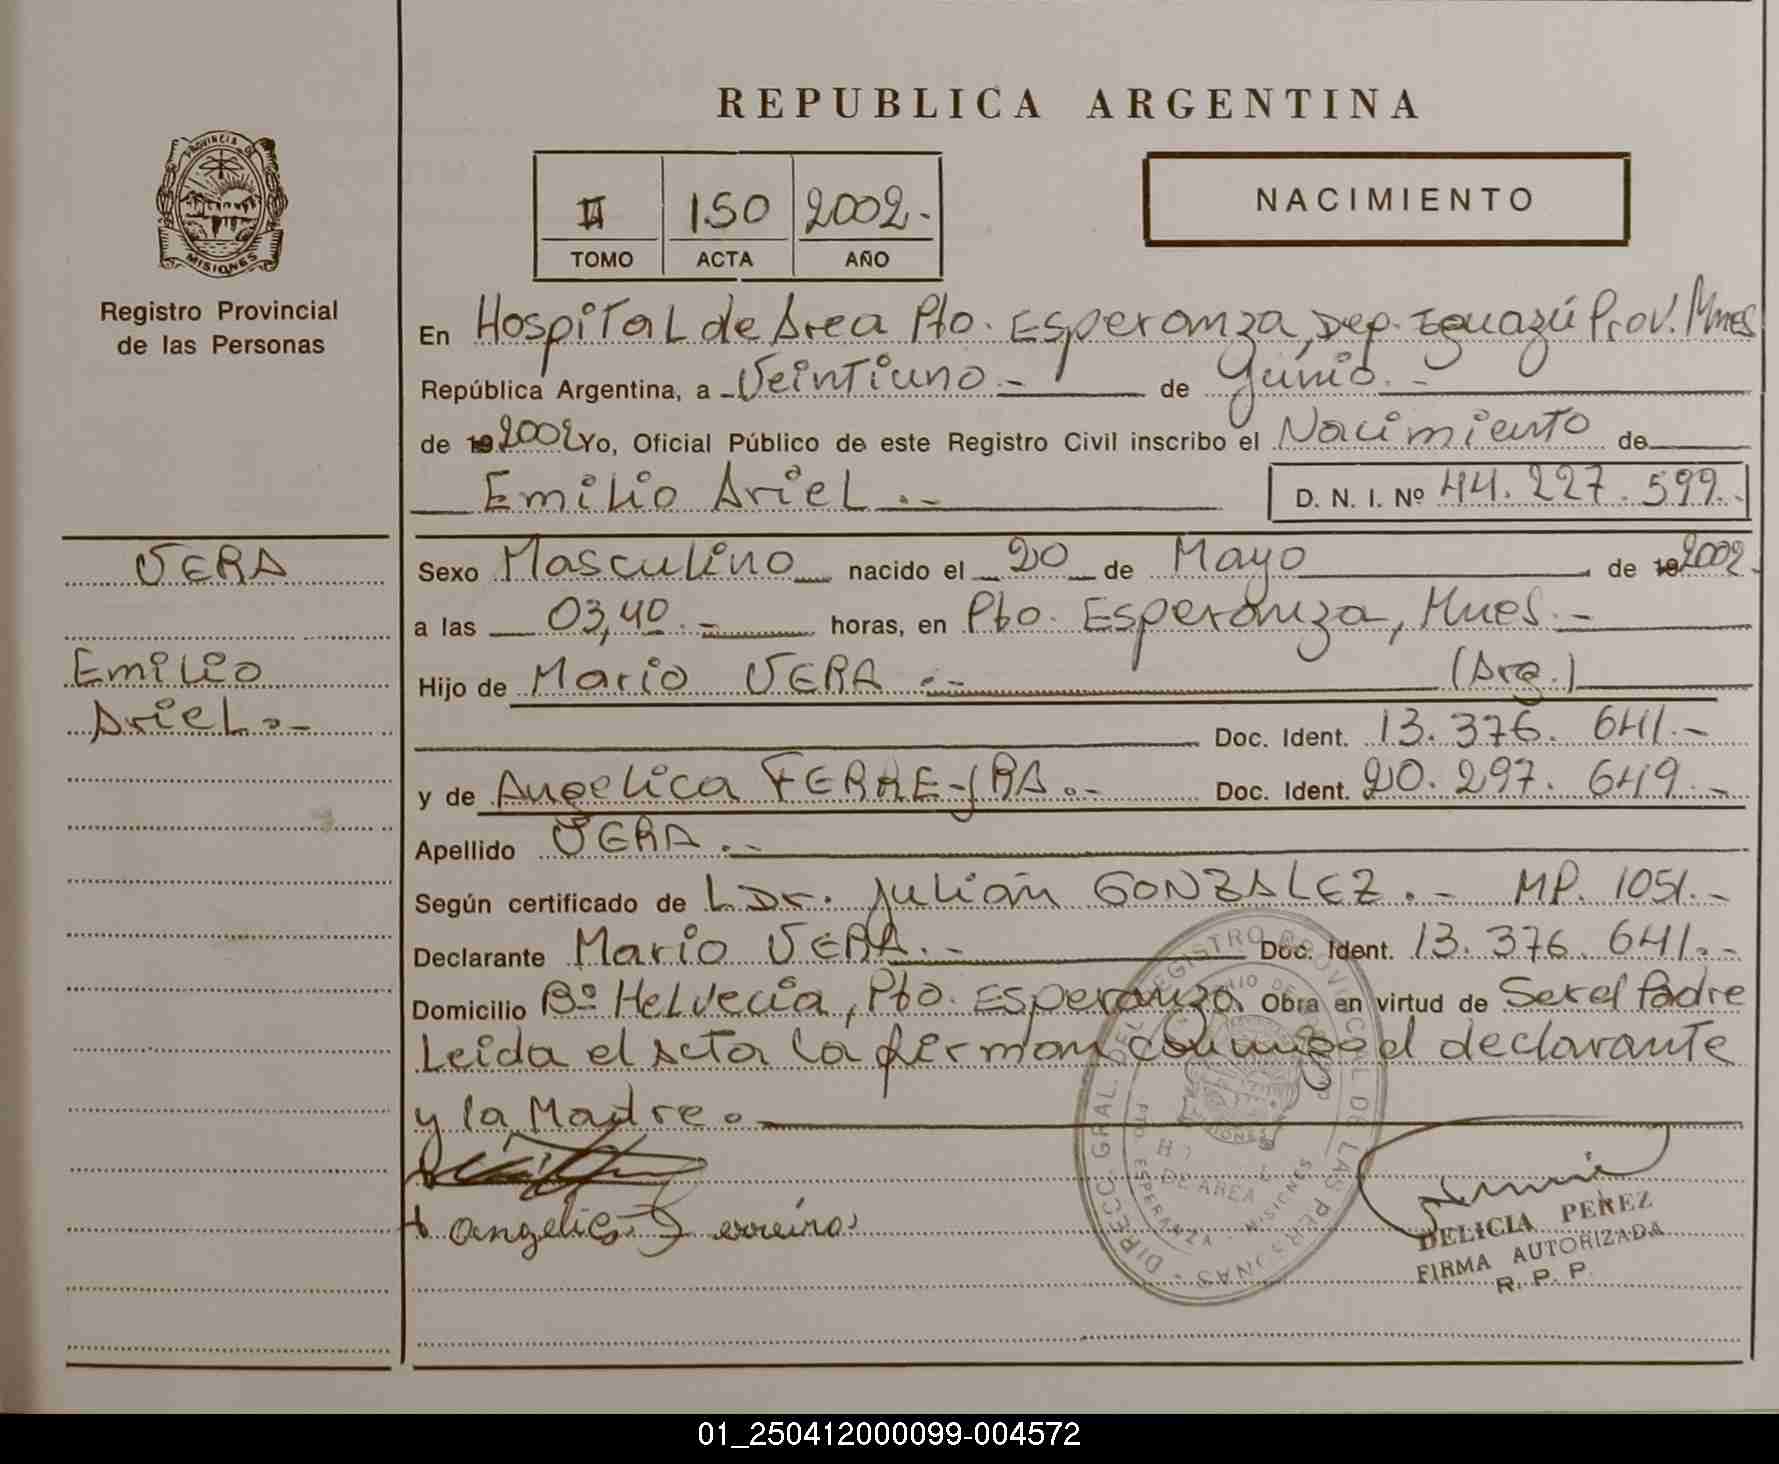 REPUBLICA ARGENTINA
PROVINCIA DE
MISIONES
Registro Provincial
de las Personas
II 150 2002.-
TOMO ACTA AÑO
NACIMIENTO
En Hospital de Area Pto. Esperanza, Dep. Iguazú Prov. Mnes
República Argentina, a - Veintiuno.- de Junio.-
de 19 2002 Yo, Oficial Público de este Registro Civil inscribo el Nacimiento de
Emilio Ariel.- D. N. I. Nº 44.227.599.-
VERA
Emilio
Ariel.-
Sexo Masculino nacido el 20 de Mayo de 19 2002.
a las 03,40.- horas, en Pto. Esperanza, Mnes.-
Hijo de Mario VERA.- (Arg.)
Doc. Ident. 13.376.641.-
y de Angelica FERREYRA.- Doc. Ident. 20.297.649.-
Apellido VERA.-
Según certificado de L Dr. Julián GONZALEZ.- MP. 1051.-
Declarante Mario VERA.- Doc. Ident. 13.376.641.-
Domicilio Bº Helvecia, Pto. Esperanza. Obra en virtud de Ser el Padre
Leida el acta la firman conmigo el declarante
y la Madre.
Angelica Ferreira
DIRECC. GRAL. DEL REGISTRO PROVINCIAL DE LAS PERSONAS
PTO. ESPERANZA - MISIONES
DE AREA
DELICIA PEREZ
FIRMA AUTORIZADA
R. P. P.
01_250412000099-004572